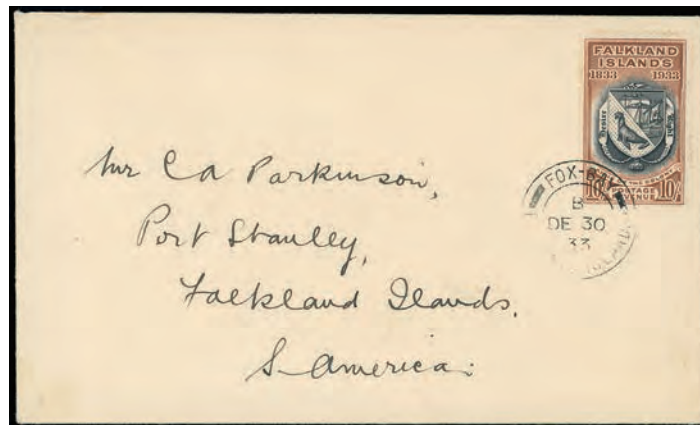 FALKLAND
ISLANDS
1833 1933
Desire Right
10/- POSTAGE 10/-
REVENUE
FOX-BAY
B
DE 30
33
Mr C A Parkinson,
Port Stanley,
Falkland Ilands.
S-America: